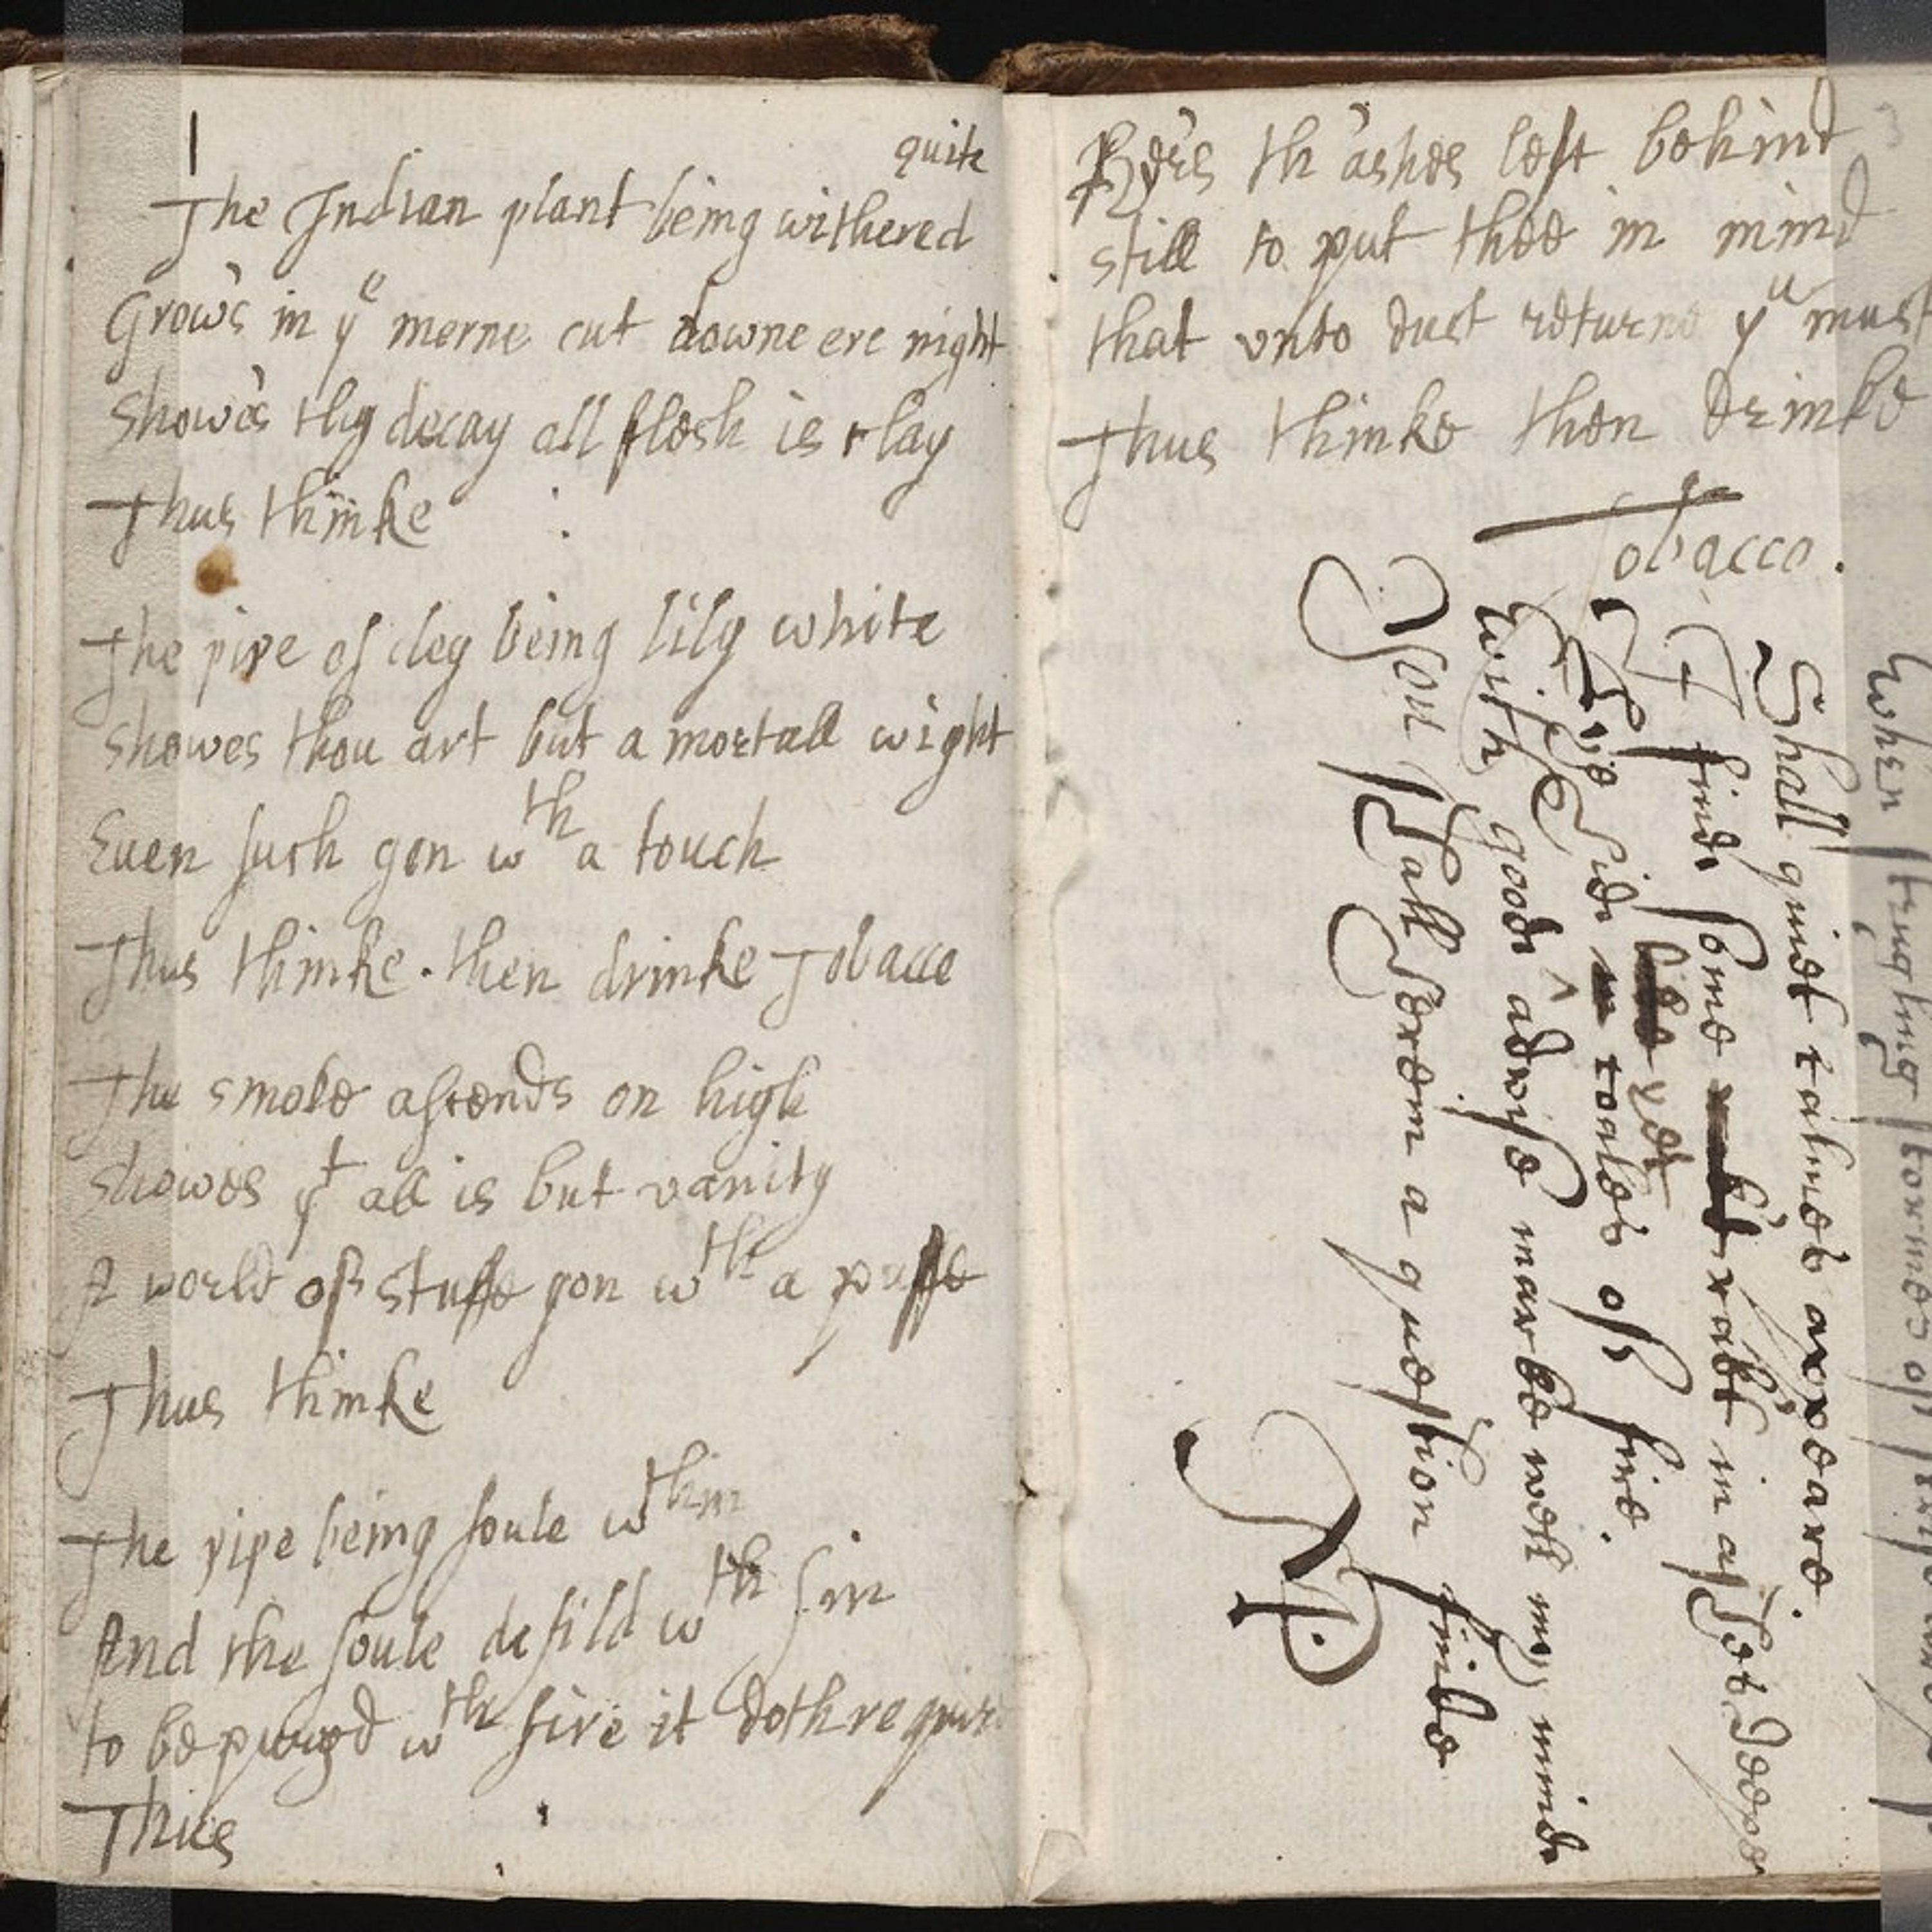 1
quite
The Indian plant being withered
Grow's in yᵉ morne cut downe ere night
Showe's thy decay all flesh is clay
Thus thinke
The pipe of cley being lily white
Showes thou art but a mortall wight
Euen such gon wᵗʰ a touch
Thus thinke. then drinke Tobacco
The smoke ascends on high
Showes yᵗ all is but vanity
A world of stuffe gon wᵗʰ a puffe
Thus thinke
The pipe being foule wᵗʰin
And the soule defild wᵗʰ sin
to be purgd wᵗʰ fire it doth require
Thus
th'ashes left behind
still to put thee in mind
that vnto dust returne yᵘ must
Thus thinke then drinke
Tobacco.
When strugling stormes of
Shall quiet calmes appeare.
I find some rakt in ashes deepe
side coales of fire.
With good advise marke well my minde
You shall herein a question finde
RP.